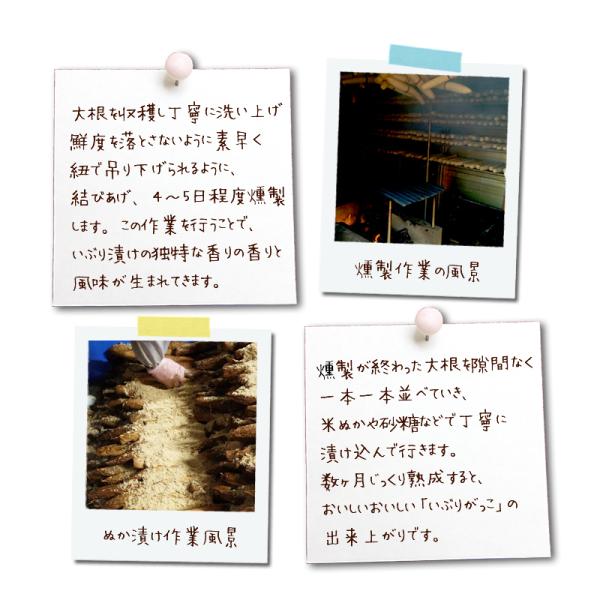 大根を収穫し丁寧に洗い上げ
鮮度を落とさないように素早く
紐で吊り下げられるように、
結びあげ、4～5日程度燻製
します。この作業を行うことで、
いぶり漬けの独特な香りの香りと
風味が生まれてきます。
燻製作業の風景
ぬか漬け作業風景
燻製が終わった大根を隙間なく
一本一本並べていき、
米ぬかや砂糖などで丁寧に
漬け込んで行きます。
数ヶ月じっくり熟成すると、
おいしいおいしい「いぶりがっこ」の
出来上がりです。